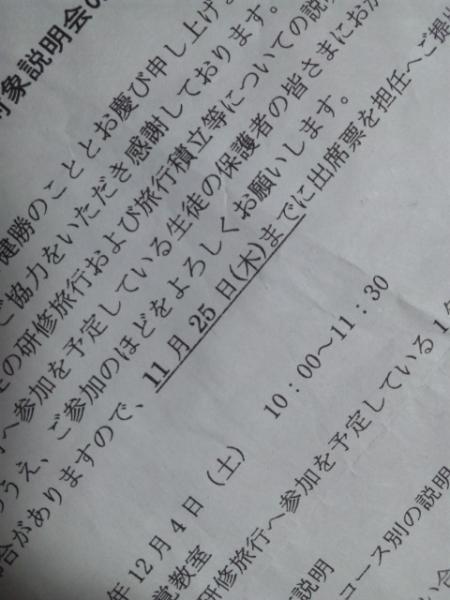 対象説明会の
健勝のこととお慶び申し上げま
ご協力をいただき感謝しております。
の研修旅行および旅行積立等についての説明
へ参加を予定している生徒の保護者の皆さまにおか
うえ、ご参加のほどをよろしくお願いします。
合がありますので、11月25日(木)までに出席票を担任へご提出
年12月4日(土) 10:00〜11:30
覚教室
研修旅行へ参加を予定している1年
説明
コース別の説明